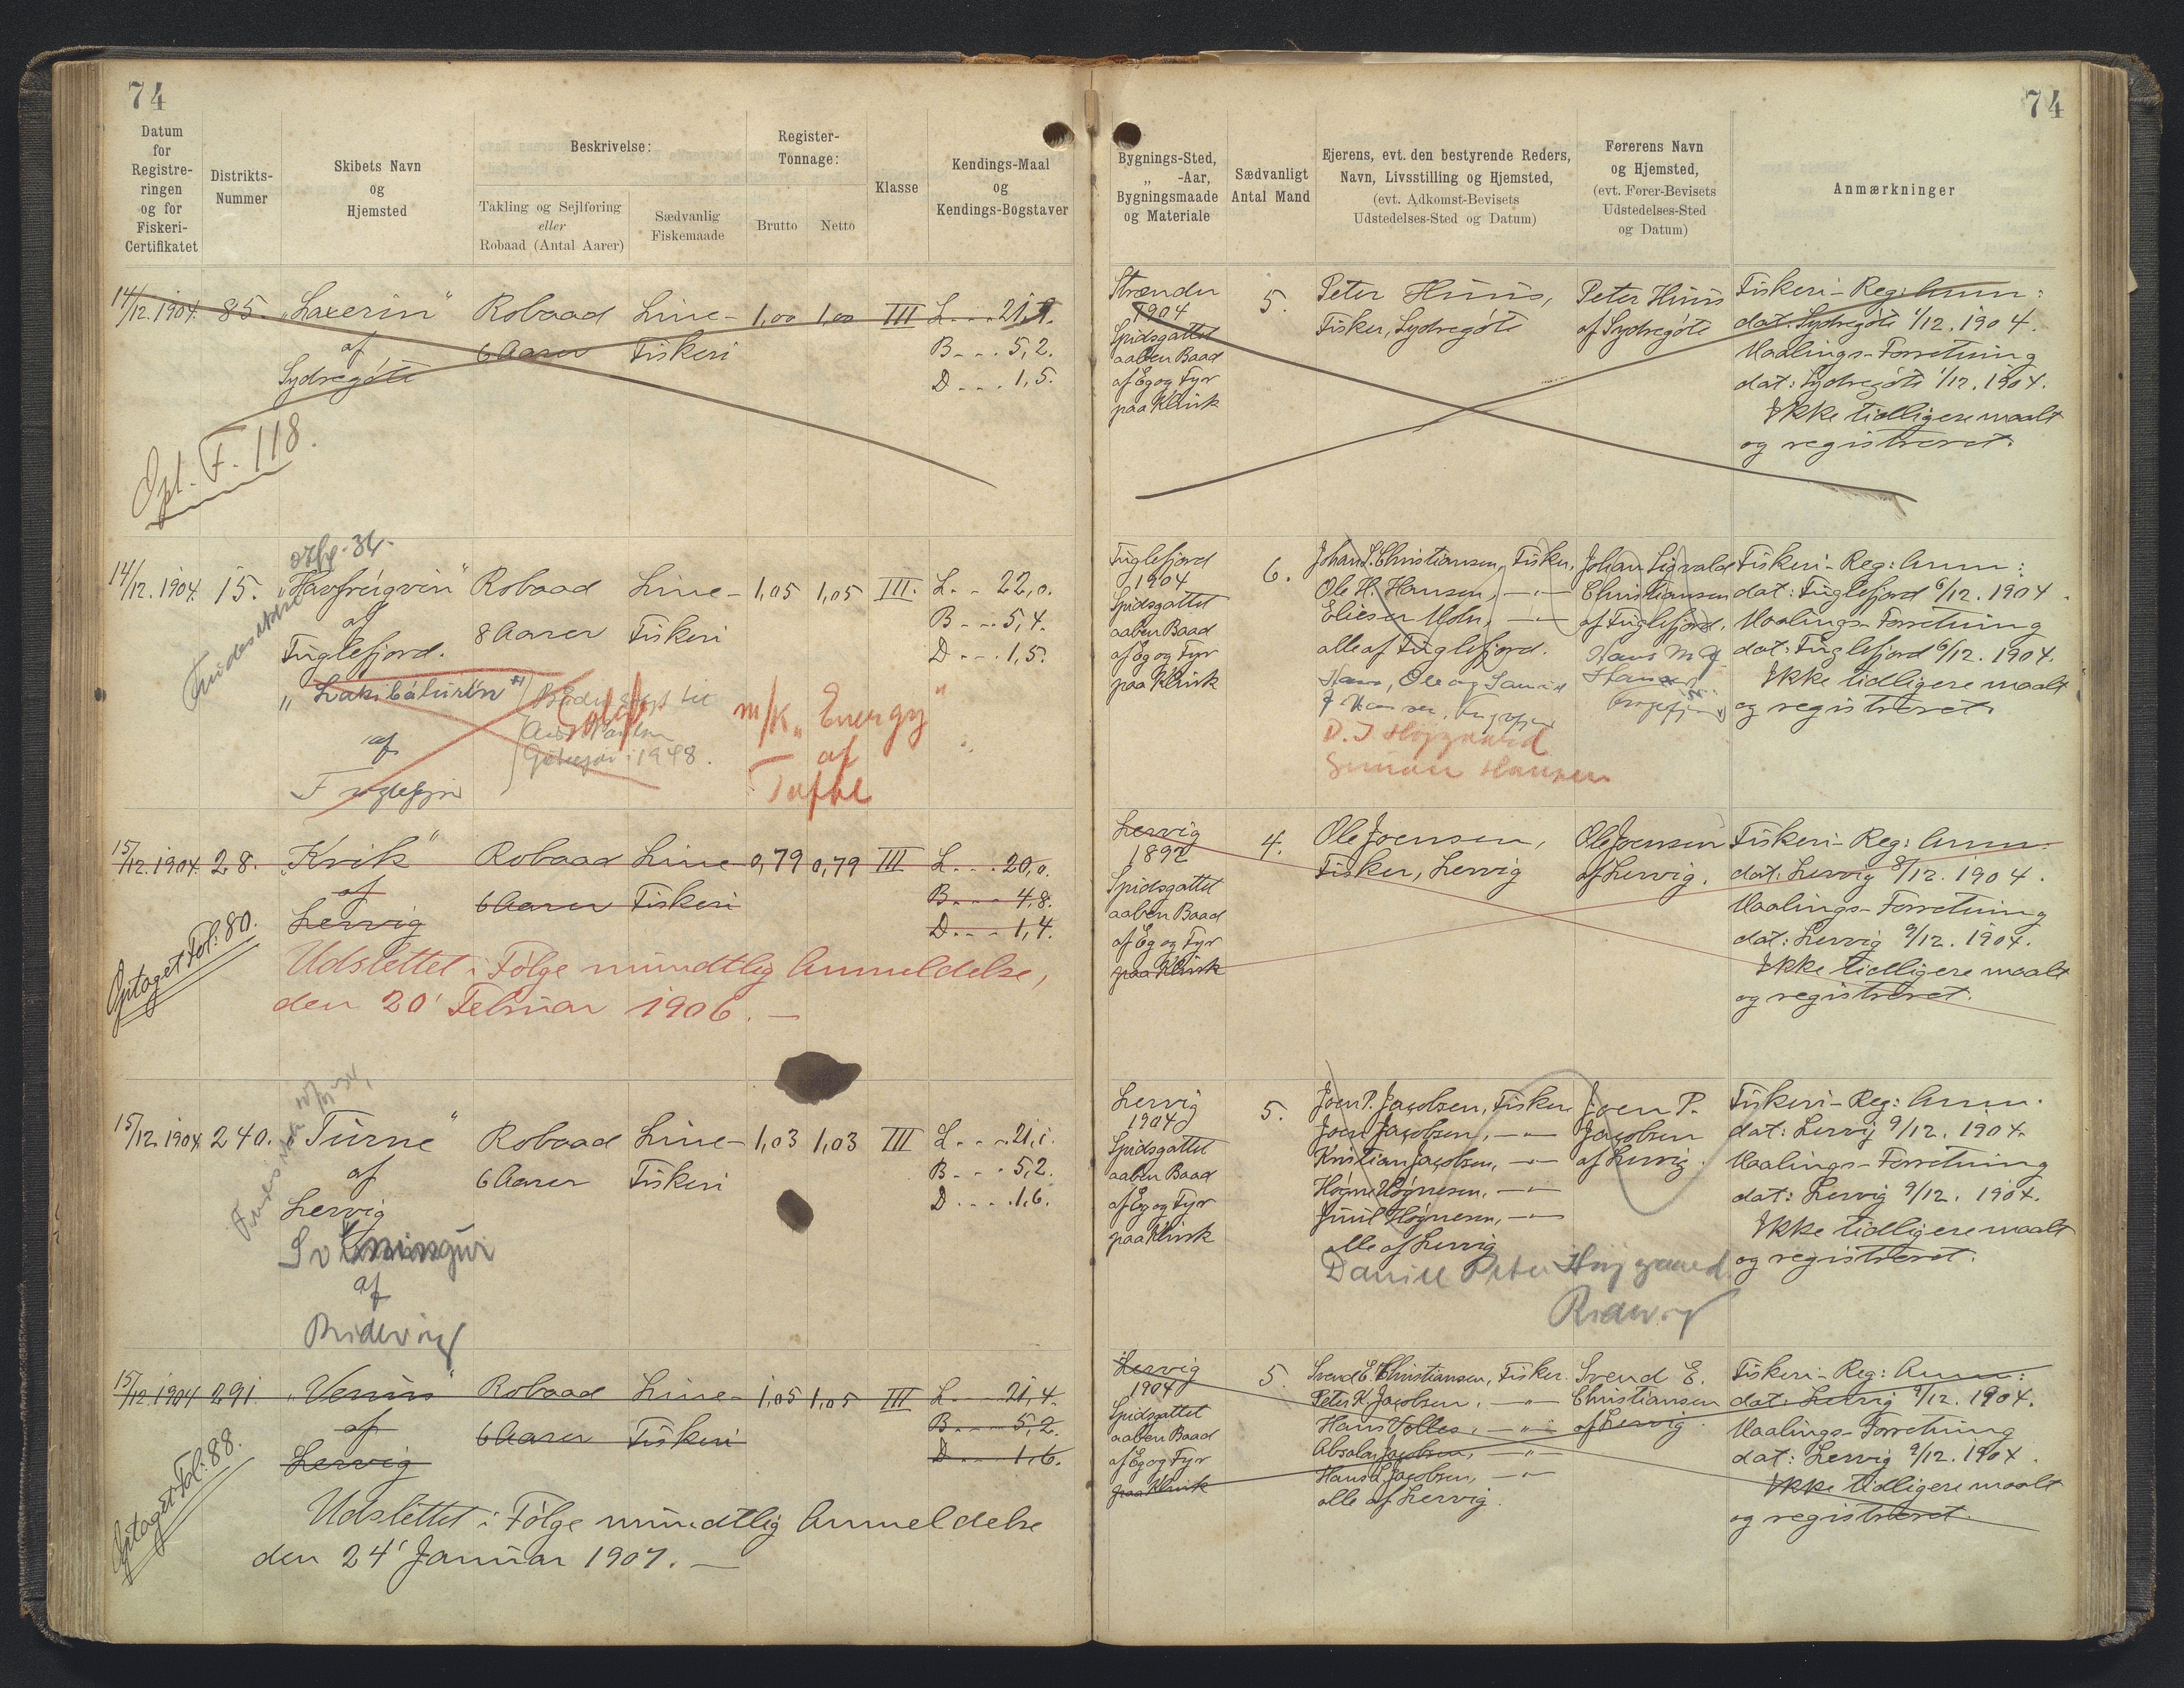 74
Datum
for
Registre-
ringen
og for
Fiskeri-
Certifikatet
Distrikts-
Nummer
Skibets Navn
og
Hjemsted
Beskrivelse:
Takling og Sejlføring
eller
Robaad (Antal Aarer)
Sædvanlig
Fiskemaade
Register-
Tonnage:
Brutto Netto
Klasse
Kendings-Maal
og
Kendings-Bogstaver
14/12. 1904. 85. „Laxerin“ Robaad Line- 1,00 1,00 III L. . . . 21,1.
af 6 Aarer Fiskeri B. . . 5,2.
Sydregöte D. . . . 1,5.
Opt. F. 118.
14/12. 1904. 15. „Havfrúgvin“ Robaad Line- 1,05 1,05 III. L. . . 22,0.
af 8 Aarer Fiskeri B. . . 5,4.
Fuglefjord. D. . . . 1,5.
af
1948.
m/k „Energy“
af
Tofte
15/12. 1904. 28. „Kvik“ Robaad Line- 0,79 0,79 III L. . . . 20,0.
af 6 Aarer Fiskeri B. . . . 4,8.
Lervig D. . . . 1,4.
Optaget Fol: 80.
Udslettet i Følge mundtlig Anmeldelse,
den 20' Februar 1906. —
15/12. 1904. 240. „Turne“ Robaad Line- 1,03 1,03 III L. . . . 21,1.
af 6 Aarer Fiskeri B. . . . 5,2.
Lervig D. . . . 1,6.
af
15/12. 1904 291. „Venus“ Robaad Line- 1,05 1,05 III L. . . . 21,4.
af 6 Aarer Fiskeri B. . . . 5,2.
Lervig D. . . . 1,6.
Optaget Fol: 88.
Udslettet i Følge mundtlig Anmeldelse
den 24' Januar 1907. —
74
Bygnings-Sted,
„ -Aar,
Bygningsmaade
og Materiale
Sædvanligt
Antal Mand
Ejerens, evt. den bestyrende Reders,
Navn, Livsstilling og Hjemsted,
(evt. Adkomst-Bevisets
Udstedelses-Sted og Datum)
Førerens Navn
og Hjemsted,
(evt. Fører-Bevisets
Udstedelses-Sted
og Datum)
Anmærkninger
Strænder
1904
Spidsgattet
aaben Baad
af Eg og Fyr
paa Klink
5.
Peter Huus,
Fisker, Sydregöte
Peter Huus
af Sydregöte
Fiskeri-Reg: Anm:
dat: Sydregöte 1/12. 1904.
Maalings-Forretning
dat: Sydregöte 1/12. 1904.
Ikke tidligere maalt
og registreret.
Fuglefjord
1904
Spidsgattet
aaben Baad
af Eg og Fyr
paa Klink
6.
Johan S. Christiansen, Fisker.
Ole H. Hansen, —„—
alle af Fuglefjord.
D. J. Højgaard
Simon Hansen
Johan Sigvald
Christiansen
af Fuglefjord.
Fiskeri-Reg: Anm:
dat: Fuglefjord 6/12. 1904.
Maalings-Forretning
dat: Fuglefjord 6/12. 1904.
Ikke tidligere maalt
og registreret.
Lervig
1892
Spidsgattet
aaben Baad
af Eg og Fyr
paa Klink
4.
Ole Joensen,
Fisker, Lervig
Ole Joensen
af Lervig.
Fiskeri-Reg: Anm.
dat: Lervig 8/12. 1904.
Maalings-Forretning
dat: Lervig 9/12. 1904.
Ikke tidligere maalt
og registreret.
Lervig
1904
Spidsgattet
aaben Baad
af Eg og Fyr
paa Klink
5.
Joen P. Jacobsen, Fisker
Joen Jacobsen, —„—
Kristian Jacobsen, —„—
Høgne Høgnesen, —„—
Juul Høgnesen, —„—
alle af Lervig
Daniel Peter Højgaard
Joen P.
Jacobsen
af Lervig.
Fiskeri-Reg: Anm.
dat: Lervig 9/12. 1904.
Maalings-Forretning
dat: Lervig 9/12. 1904.
Ikke tidligere maalt
og registreret.
Lervig
1904
Spidsgattet
aaben Baad
af Eg og Fyr
paa Klink
5.
Svend E. Christiansen, Fisker.
Peter K. Jacobsen, —„—
Hans Volles, —„—
Absalon Jacobsen, —„—
Hans L. Jacobsen, —„—
alle af Lervig.
Svend E.
Christiansen
af Lervig.
Fiskeri-Reg: Anm:
dat: Lervig 9/12. 1904.
Maalings-Forretning
dat: Lervig 9/12. 1904.
Ikke tidligere maalt
og registreret.